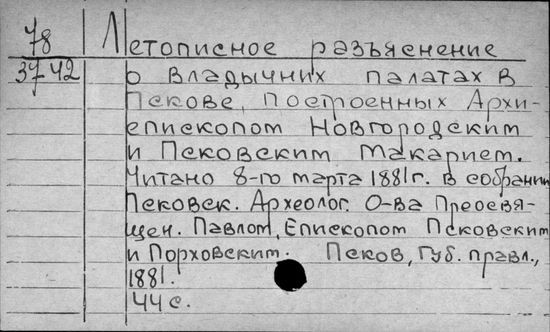 78
3742
Летописное разъяснение
о Владычних палатах в
Пскове, построенных Архи-
епископом Новгородским
и Псковским Макарием.
Читано 8-го марта 1881 г. в собрании
Псковск. Археолог. О-ва Преосвя-
щен. Павлом, Епископом Псковским
и Порховским. Псков, Губ. правл.,
1881.
44 с.